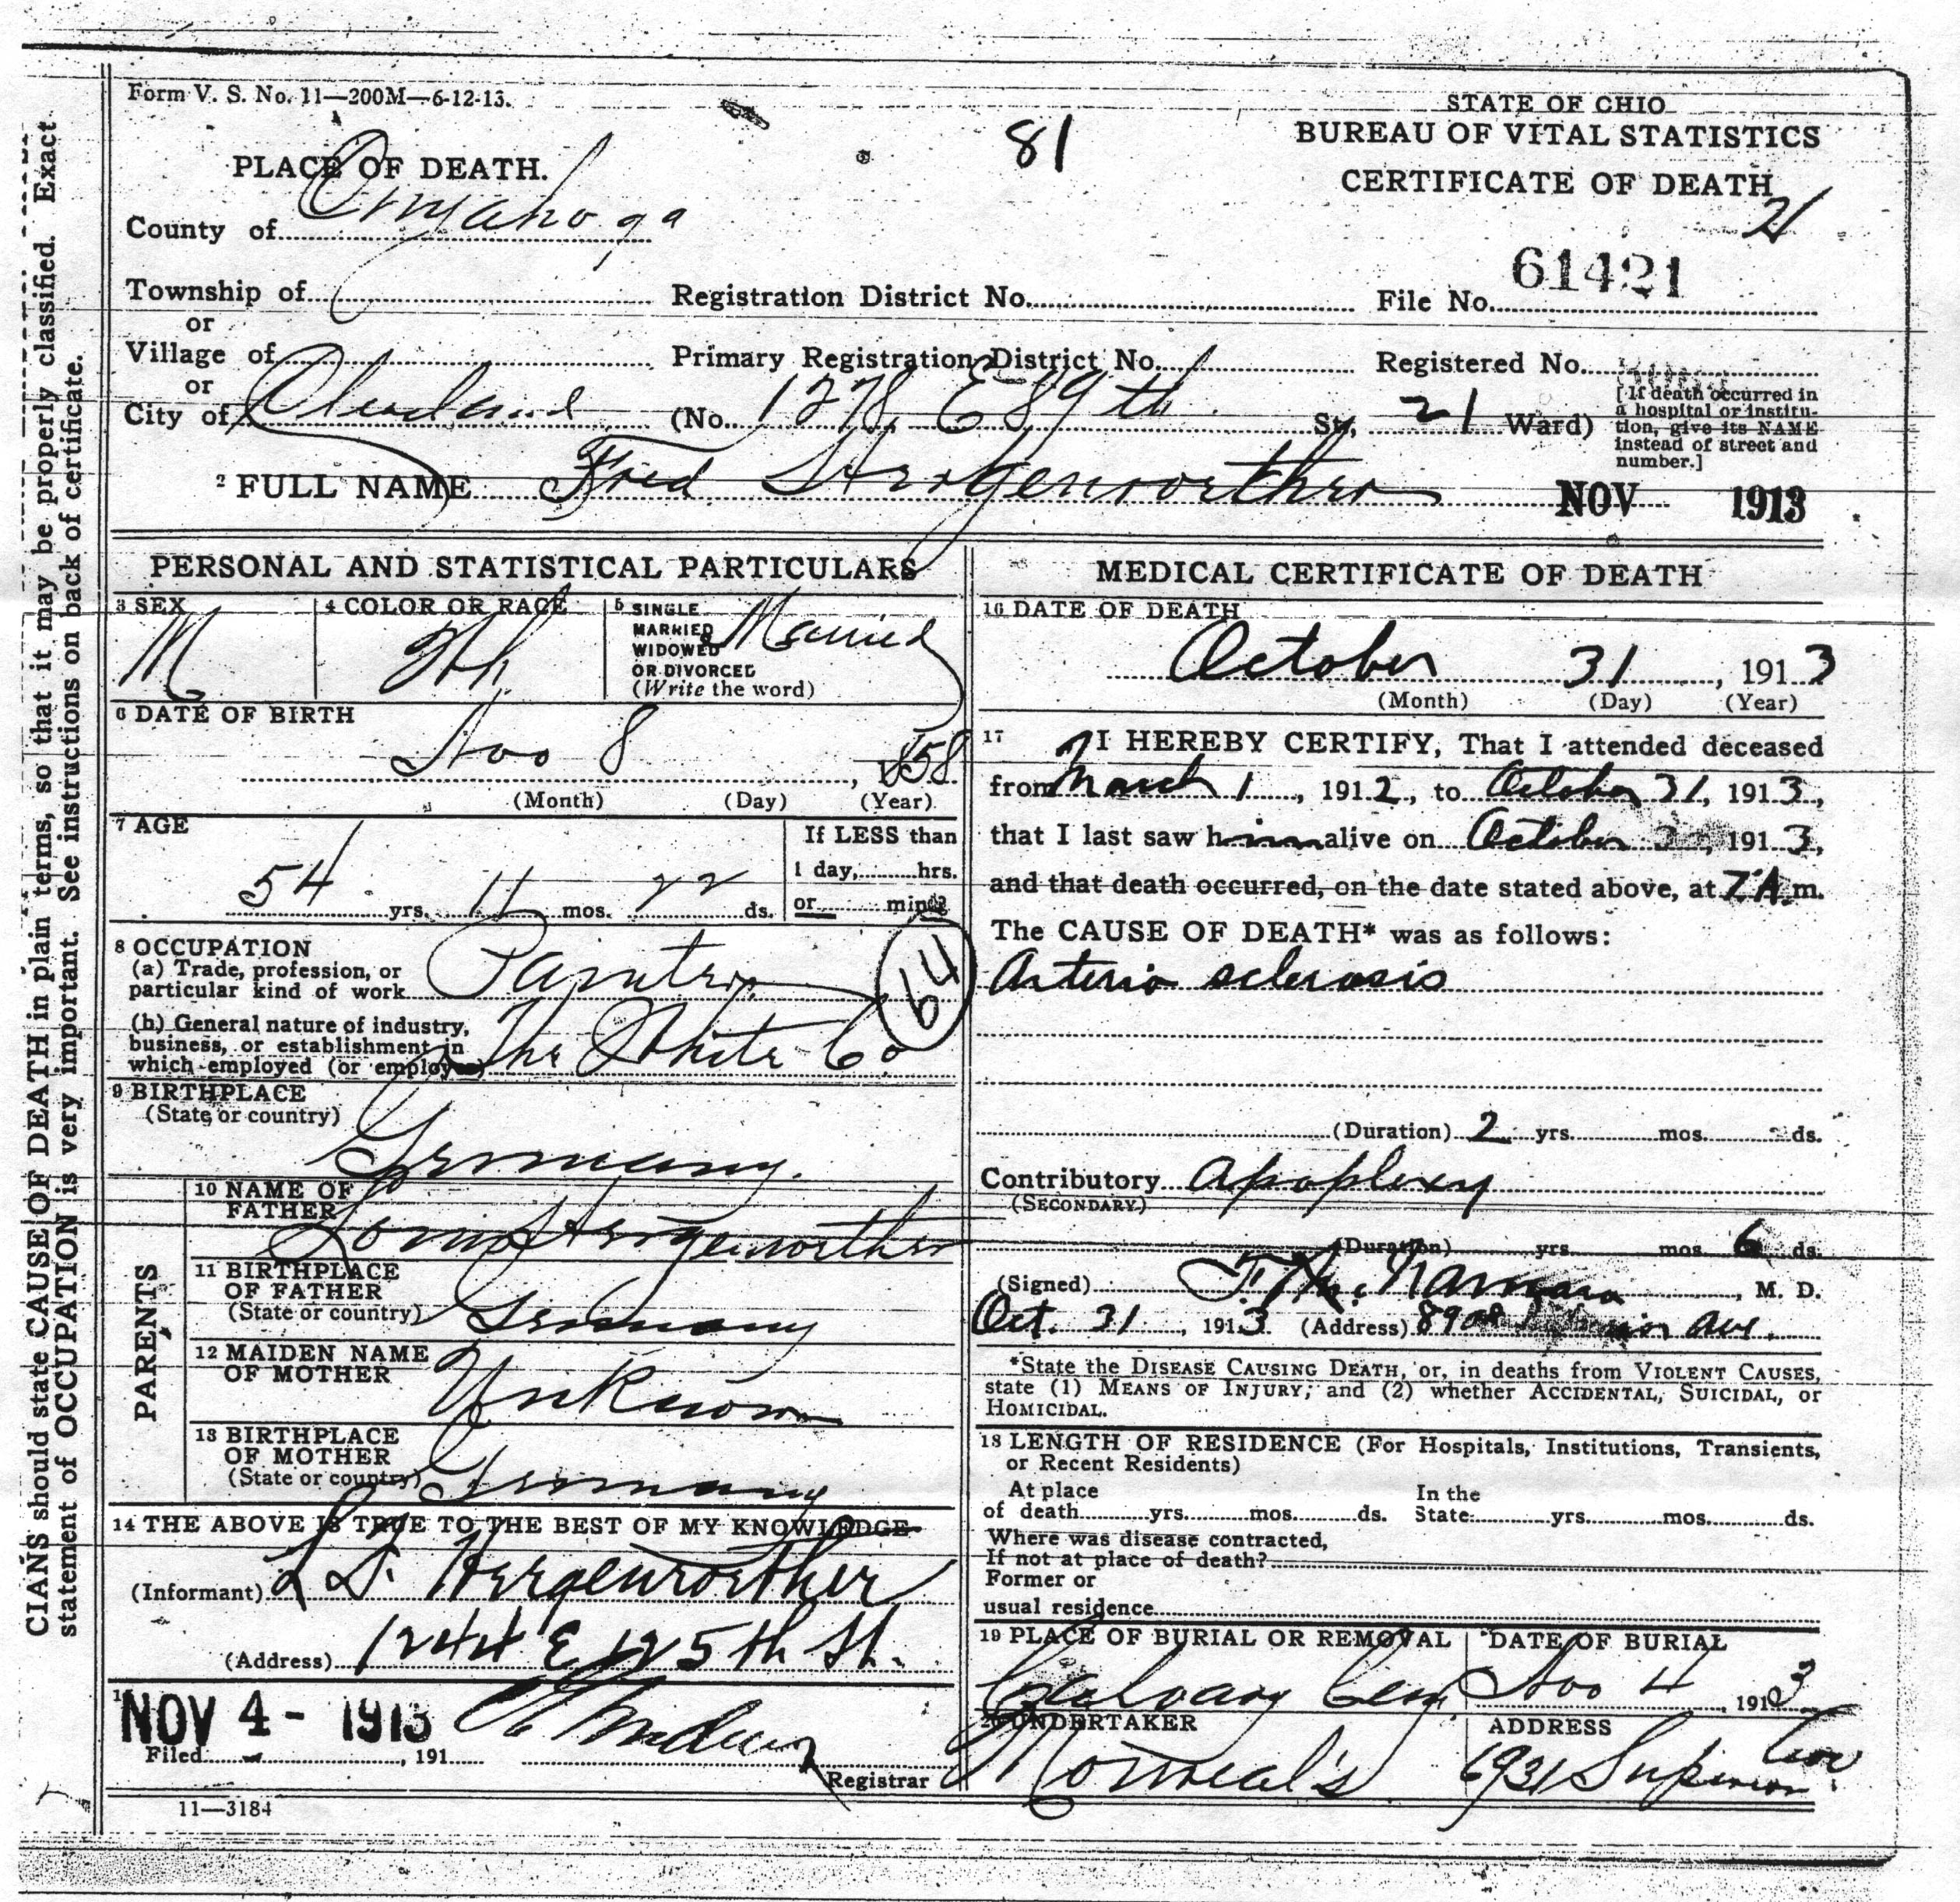 Form V. S. No. 11—200M—6-12-13.
STATE OF OHIO
BUREAU OF VITAL STATISTICS
CERTIFICATE OF DEATH
81
21
PLACE OF DEATH.
County of Cuyahoga
Township of
Registration District No.
File No. 61421
or
Village of
Primary Registration District No. 1
Registered No.
or
City of Cleveland
(No. 1278 E 89th St; 21 Ward)
[If death occurred in
a hospital or institu-
tion, give its NAME
instead of street and
number.]
2 FULL NAME Fred Hergenroether
NOV 1913
PERSONAL AND STATISTICAL PARTICULARS
3 SEX
M
4 COLOR OR RACE
Wh
5 SINGLE
MARRIED
WIDOWED
OR DIVORCED
(Write the word)
Married
6 DATE OF BIRTH
Nov 8, 1858
(Month) (Day) (Year)
7 AGE
54 yrs. 11 mos. 22 ds.
If LESS than
1 day, hrs.
or min?
8 OCCUPATION
(a) Trade, profession, or
particular kind of work Painter
(b) General nature of industry,
business, or establishment in
which employed (or employer) The White Co
64
9 BIRTHPLACE
(State or country)
Germany.
PARENTS
10 NAME OF
FATHER
Louis Hergenroether
11 BIRTHPLACE
OF FATHER
(State or country) Germany
12 MAIDEN NAME
OF MOTHER Unknown
13 BIRTHPLACE
OF MOTHER
(State or country) Germany
14 THE ABOVE IS TRUE TO THE BEST OF MY KNOWLEDGE
(Informant) L. F. Hergenroether
(Address) 1244 E 125th St.
NOV 4 - 1913
Filed , 191
Registrar
11—3184
MEDICAL CERTIFICATE OF DEATH
16 DATE OF DEATH
October 31, 1913
(Month) (Day) (Year)
17 I HEREBY CERTIFY, That I attended deceased
from March 1, 1912, to October 31, 1913,
that I last saw him alive on October 3, 1913,
and that death occurred, on the date stated above, at 7 A.m.
The CAUSE OF DEATH* was as follows:
Arterio sclerosis
(Duration) 2 yrs. mos. ds.
Contributory Apoplexy
(SECONDARY)
(Duration) yrs. mos. 6 ds.
(Signed) T. McNamara, M. D.
Oct. 31, 1913 (Address) 8908 Ave.
*State the DISEASE CAUSING DEATH, or, in deaths from VIOLENT CAUSES,
state (1) MEANS OF INJURY; and (2) whether ACCIDENTAL, SUICIDAL, or
HOMICIDAL.
18 LENGTH OF RESIDENCE (For Hospitals, Institutions, Transients,
or Recent Residents)
At place
of death yrs. mos. ds.
In the
State yrs. mos. ds.
Where was disease contracted,
If not at place of death?
Former or
usual residence
19 PLACE OF BURIAL OR REMOVAL
Calvary Cem.
DATE OF BURIAL
Nov 4, 1913
20 UNDERTAKER
ADDRESS
6931 Superior Ave
CIANS should state CAUSE OF DEATH in plain terms, so that it may be properly classified. Exact
statement of OCCUPATION is very important. See instructions on back of certificate.